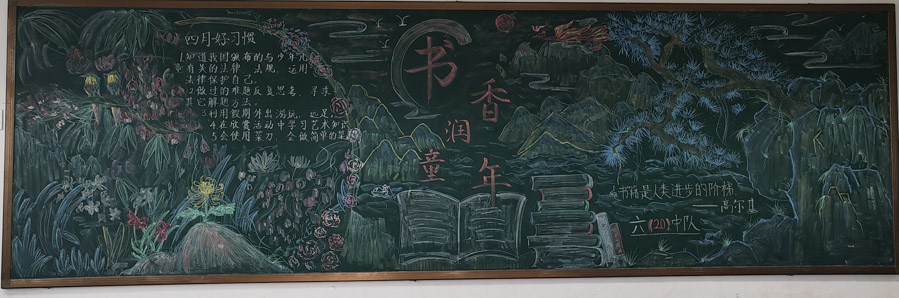 四月好习惯
1.知道我国颁布的与少年儿
童有关的法律、法规,运用
法律保护自己。
2.做过的难题反复思考,寻求
其它解题方法。
3.利用假期外出游玩、远足。
4.在欣赏活动中学习艺术知识
5.会使用菜刀,会做简单的菜
书香
润
童年
书籍是人类进步的阶梯
——高尔基
六(20)中队